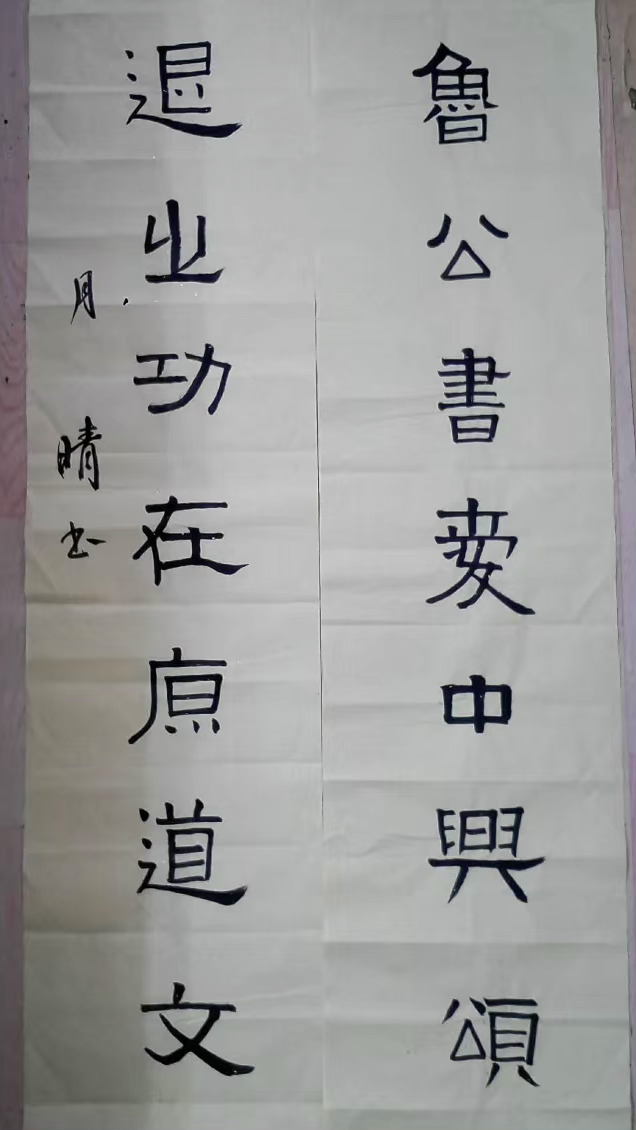 魯公書愛中興頌
退之功在原道文
月晴书